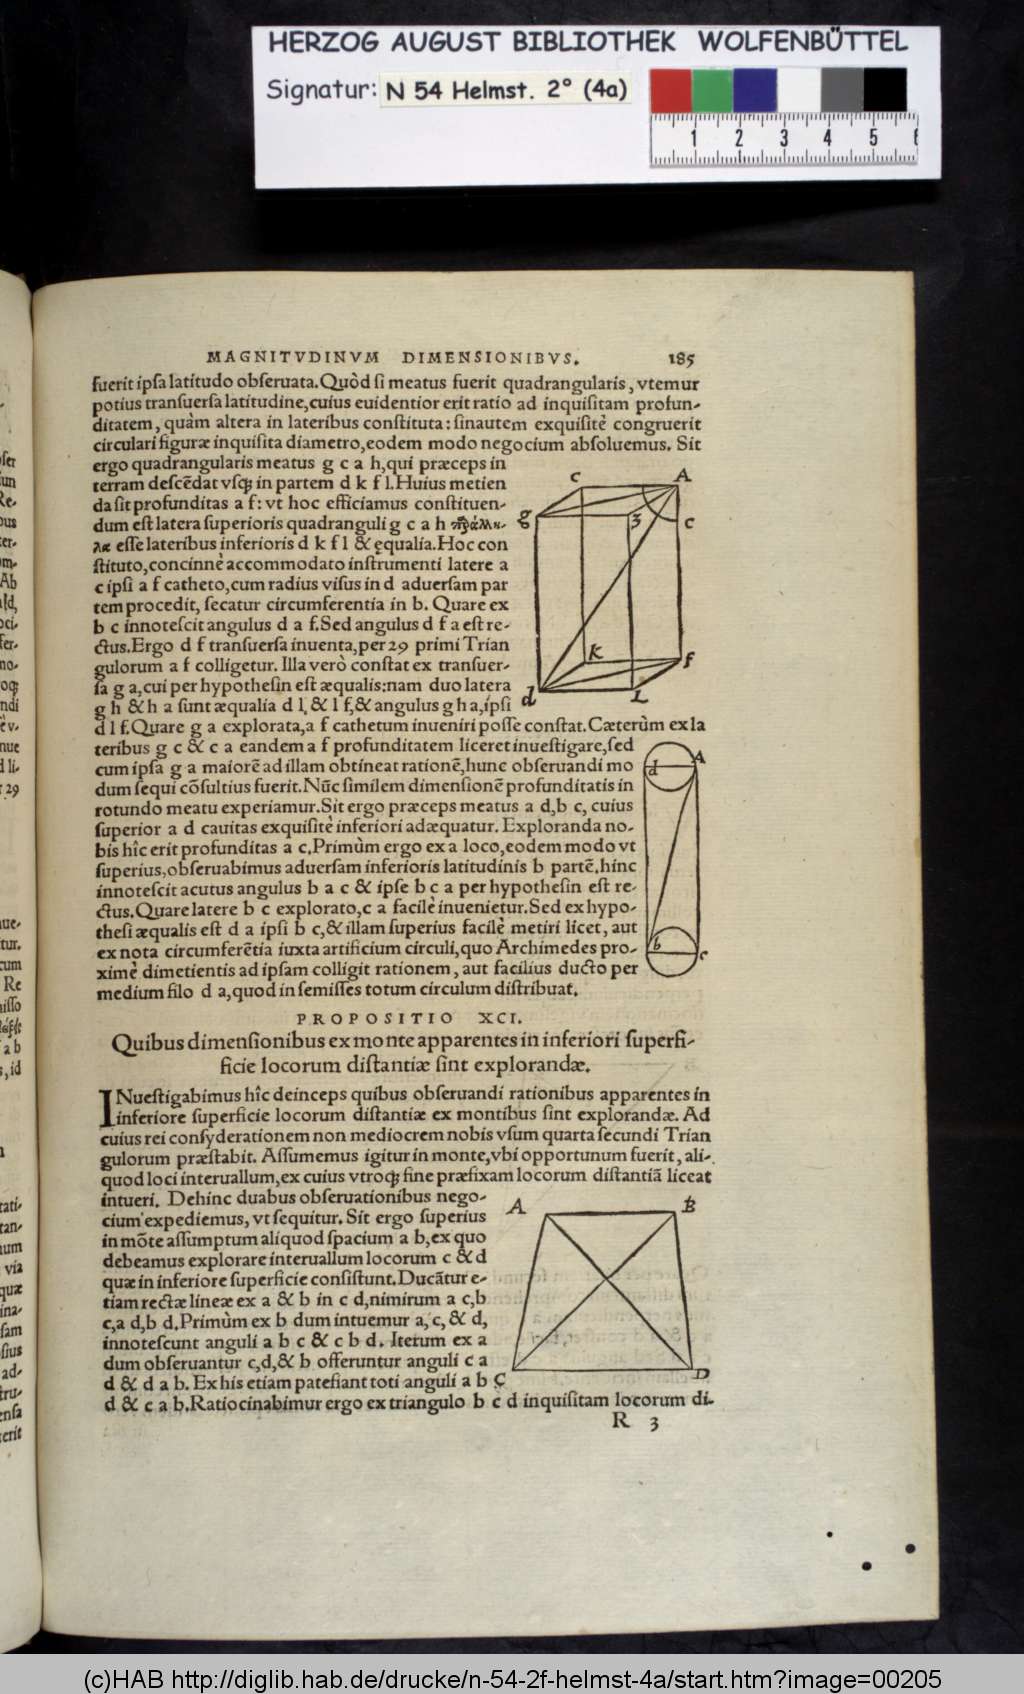 HERZOG AUGUST BIBLIOTHEK WOLFENBÜTTEL
Signatur: N 54 Helmst. 2° (4a)
1 2 3 4 5 6
MAGNITVDINVM DIMENSIONIBVS. 185
fuerit ipſa latitudo obſeruata. Quòd ſi meatus fuerit quadrangularis, vtemur
potius tranſuerſa latitudine, cuius euidentior erit ratio ad inquiſitam profun-
ditatem, quàm altera in lateribus conſtituta: ſinautem exquiſitè congruerit
circulari figuræ inquiſita diametro, eodem modo negocium abſoluemus. Sit
ergo quadrangularis meatus g c a h, qui præceps in
terram deſcēdat vſqꝫ in partem d k f l. Huius metien
da ſit profunditas a f: vt hoc efficiamus conſtituen-
dum eſt latera ſuperioris quadranguli g c a h
eſſe lateribus inferioris d k f l & ęqualia. Hoc con
ſtituto, concinnè accommodato inſtrumenti latere a
c ipſi a f catheto, cum radius viſus in d aduerſam par
tem procedit, ſecatur circumferentia in b. Quare ex
b c innoteſcit angulus d a f. Sed angulus d f a eſt re-
ctus. Ergo d f tranſuerſa inuenta, per 29 primi Trian
gulorum a f colligetur. Illa verò conſtat ex tranſuer-
ſa g a, cui per hypotheſin eſt æqualis: nam duo latera
g h & h a ſunt æqualia d l, & l f, & angulus g h a, ipſi
d l f. Quare g a explorata, a f cathetum inueniri poſſe conſtat. Cæterùm ex la
teribus g c & c a eandem a f profunditatem liceret inueſtigare, ſed
cum ipſa g a maiorē ad illam obtineat rationē, hunc obſeruandi mo
dum ſequi cōſultius fuerit. Nūc ſimilem dimenſionē profunditatis in
rotundo meatu experiamur. Sit ergo præceps meatus a d, b c, cuius
ſuperior a d cauitas exquiſitè inferiori adæquatur. Exploranda no-
bis hîc erit profunditas a c. Primùm ergo ex a loco, eodem modo vt
ſuperius, obſeruabimus aduerſam inferioris latitudinis b partē. hinc
innoteſcit acutus angulus b a c & ipſe b c a per hypotheſin eſt re-
ctus. Quare latere b c explorato, c a facilè inuenietur. Sed ex hypo-
theſi æqualis eſt d a ipſi b c, & illam ſuperius facilè metiri licet, aut
ex nota circumferētia iuxta artificium circuli, quo Archimedes pro-
ximè dimetientis ad ipſam colligit rationem, aut facilius ducto per
medium filo d a, quod in ſemiſſes totum circulum diſtribuat.
c A
g 3 c
k f
d L
d A
b c
PROPOSITIO XCI.
Quibus dimenſionibus ex monte apparentes in inferiori ſuperfi-
ficie locorum diſtantiæ ſint explorandæ.
INueſtigabimus hîc deinceps quibus obſeruandi rationibus apparentes in
inferiore ſuperficie locorum diſtantiæ ex montibus ſint explorandæ. Ad
cuius rei conſyderationem non mediocrem nobis vſum quarta ſecundi Trian
gulorum præſtabit. Aſſumemus igitur in monte, vbi opportunum fuerit, ali-
quod loci interuallum, ex cuius vtroqꝫ fine præfixam locorum diſtantiā liceat
intueri. Dehinc duabus obſeruationibus nego-
cium expediemus, vt ſequitur. Sit ergo ſuperius
in mōte aſſumptum aliquod ſpacium a b, ex quo
debeamus explorare interuallum locorum c & d
quæ in inferiore ſuperficie conſiſtunt. Ducātur e-
tiam rectæ lineæ ex a & b in c d, nimirum a c, b
c, a d, b d. Primùm ex b dum intuemur a, c, & d,
innoteſcunt anguli a b c & c b d. Iterum ex a
dum obſeruantur c, d, & b offeruntur anguli c a
d & d a b. Ex his etiam patefiant toti anguli a b
d & c a b. Ratiocinabimur ergo ex triangulo b c d inquiſitam locorum di-
A B
C D
R 3
(c)HAB http://diglib.hab.de/drucke/n-54-2f-helmst-4a/start.htm?image=00205